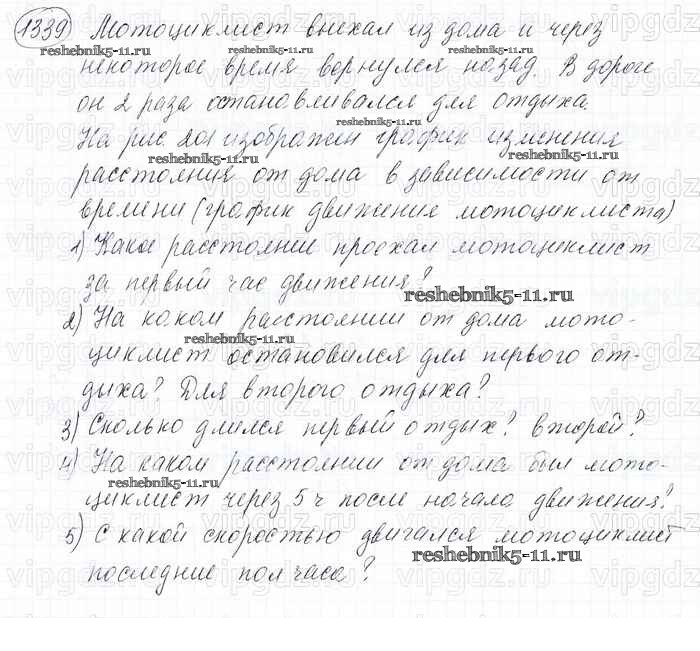 1339 Мотоциклист выехал из дома и через
некоторое время вернулся назад. В дороге
он 2 раза останавливался для отдыха.
На рис. 201 изображен график изменения
расстояния от дома в зависимости от
времени (график движения мотоциклиста)
1) Какое расстояние проехал мотоциклист
за первый час движения?
2) На каком расстоянии от дома мото-
циклист остановился для первого от-
дыха? Для второго отдыха?
3) Сколько длился первый отдых? второй?
4) На каком расстоянии от дома был мото-
циклист через 5 ч после начала движения?
5) С какой скоростью двигался мотоциклист
последние полчаса?
reshebnik5-11.ru
reshebnik5-11.ru
reshebnik5-11.ru
reshebnik5-11.ru
reshebnik5-11.ru
reshebnik5-11.ru
reshebnik5-11.ru
reshebnik5-11.ru
reshebnik5-11.ru
reshebnik5-11.ru
reshebnik5-11.ru